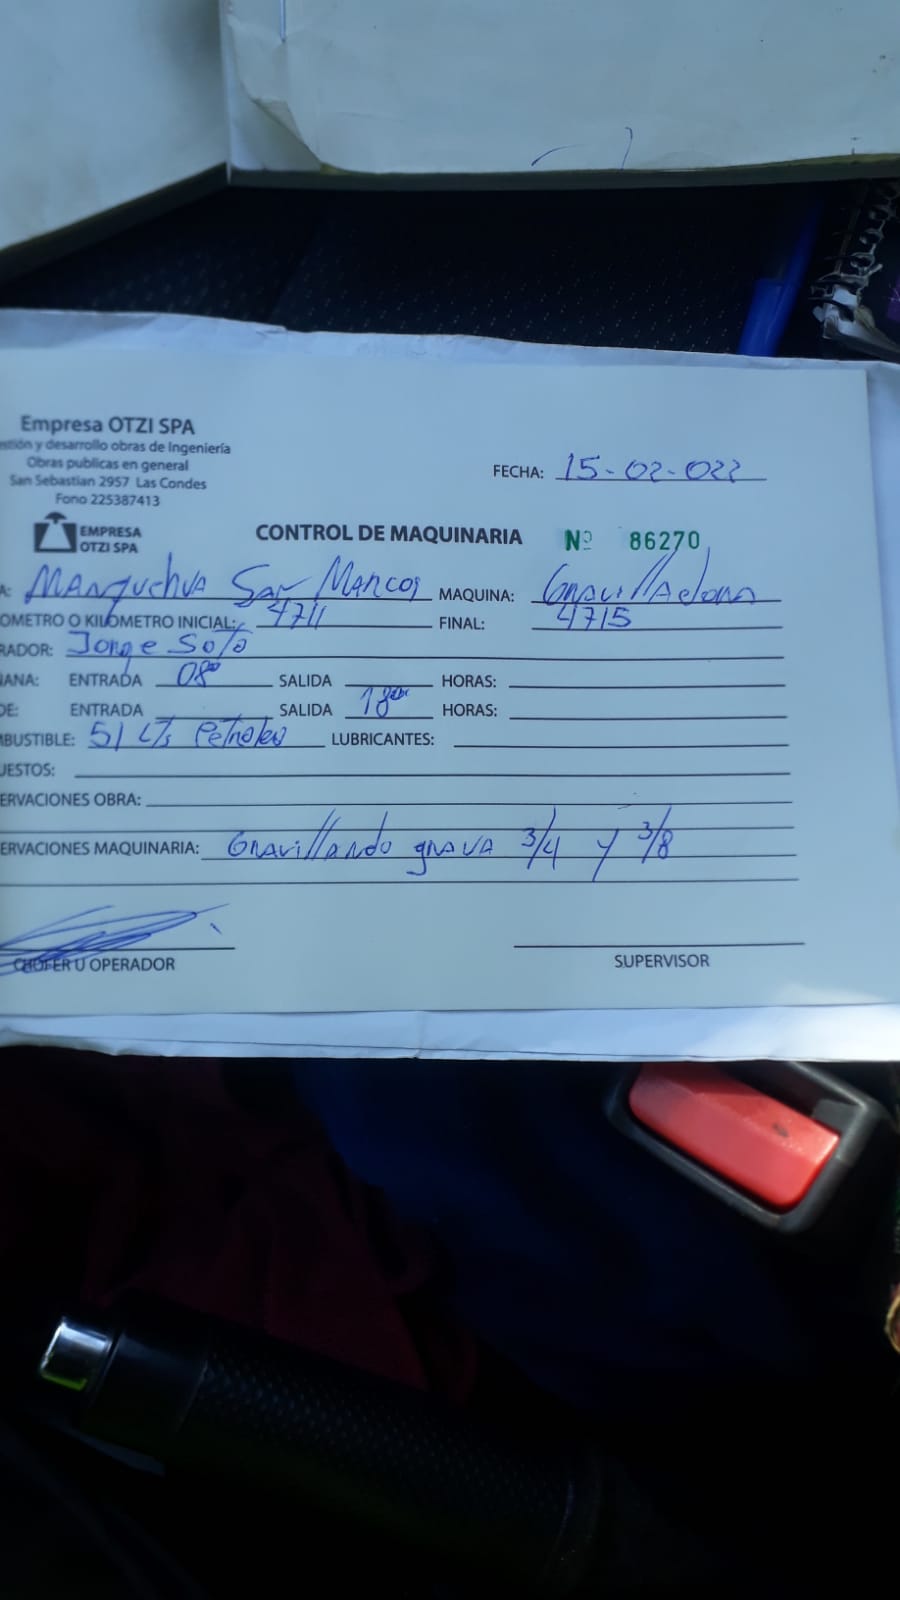 Empresa OTZI SPA
estión y desarrollo obras de Ingeniería
Obras publicas en general
San Sebastian 2957 Las Condes
Fono 225387413
FECHA: 15-02-022
EMPRESA
OTZI SPA
CONTROL DE MAQUINARIA Nº 86270
A: Manquehua San Marcos MAQUINA: Gravilladora
OMETRO O KILOMETRO INICIAL: 4711 FINAL: 4715
RADOR: Jorge Soto
ÑANA: ENTRADA 08⁰⁰ SALIDA HORAS:
DE: ENTRADA SALIDA 18 HORAS:
MBUSTIBLE: 51 Lts Petroleo LUBRICANTES:
UESTOS:
ERVACIONES OBRA:
ERVACIONES MAQUINARIA: Gravillando grava 3/4 y 3/8
CHOFER U OPERADOR SUPERVISOR